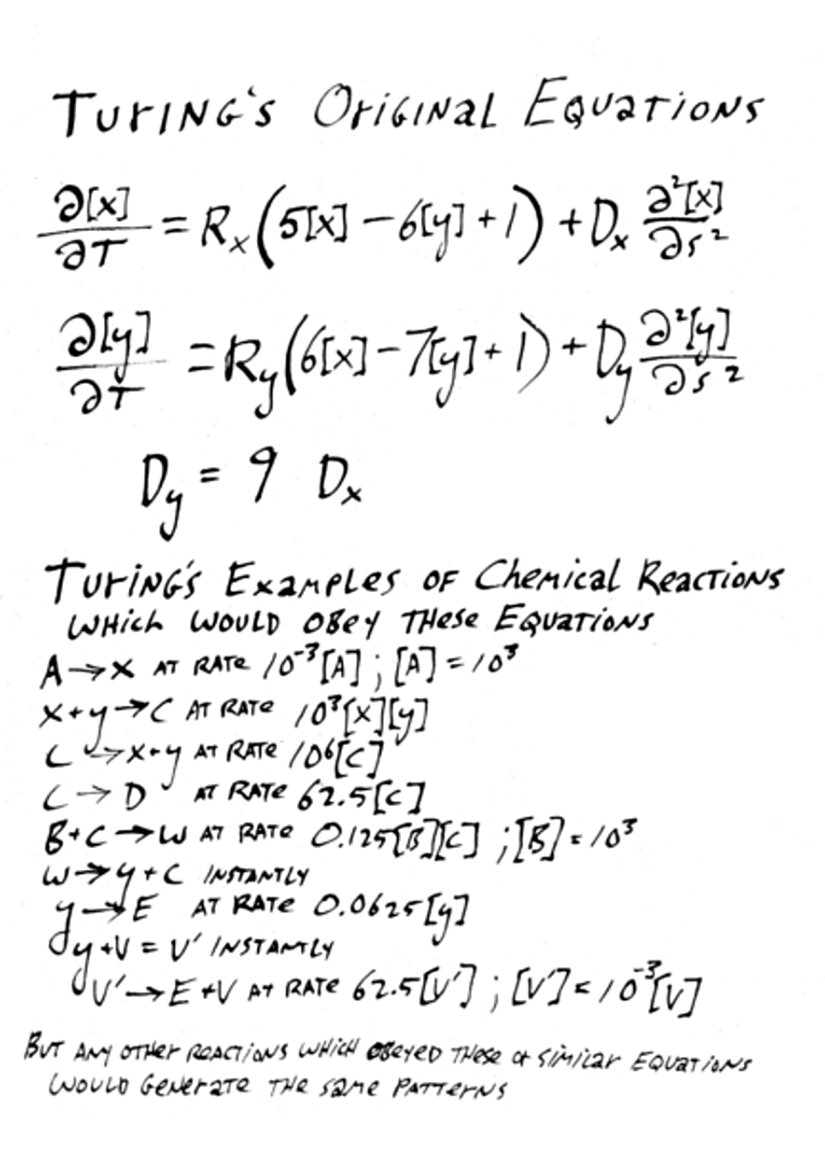 Turing's Original Equations
∂[x]/∂T = Rx(5[x] - 6[y] + 1) + Dx ∂²[x]/∂s²
∂[y]/∂T = Ry(6[x] - 7[y] + 1) + Dy ∂²[y]/∂s²
Dy = 9 Dx
Turing's Examples of Chemical Reactions
Which would obey these Equations
A → X at rate 10⁻³[A] ; [A] = 10³
X + y → C at rate 10³[X][y]
C → X + y at rate 10⁶[C]
C → D at rate 62.5[C]
B + C → W at rate 0.125[B][C] ; [B] = 10³
W → y + C instantly
y → E at rate 0.0625[y]
y + V = V' instantly
V' → E + V at rate 62.5[V'] ; [V'] = 10⁻³[V]
But any other reactions which obeyed these or similar equations
would generate the same patterns